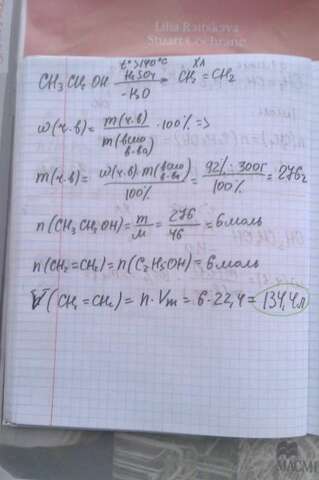 Lilia Raitskaya
Stuart Cochrane
CH₃CH₂OH t°>140°C H₂SO₄ -H₂O → Xл CH₂=CH₂
ω(ч.в)= m(ч.в) / m(всего в-ва) ·100% =>
m(ч.в)= ω(ч.в)·m(всего в-ва) / 100% = 92%·300г / 100% = 276г
n(CH₃CH₂OH)= m/M = 276/46 = 6 моль
n(CH₂=CH₂)=n(C₂H₅OH)=6моль
V(CH₂=CH₂)= n·Vm = 6·22,4= 134,4л
MACMI